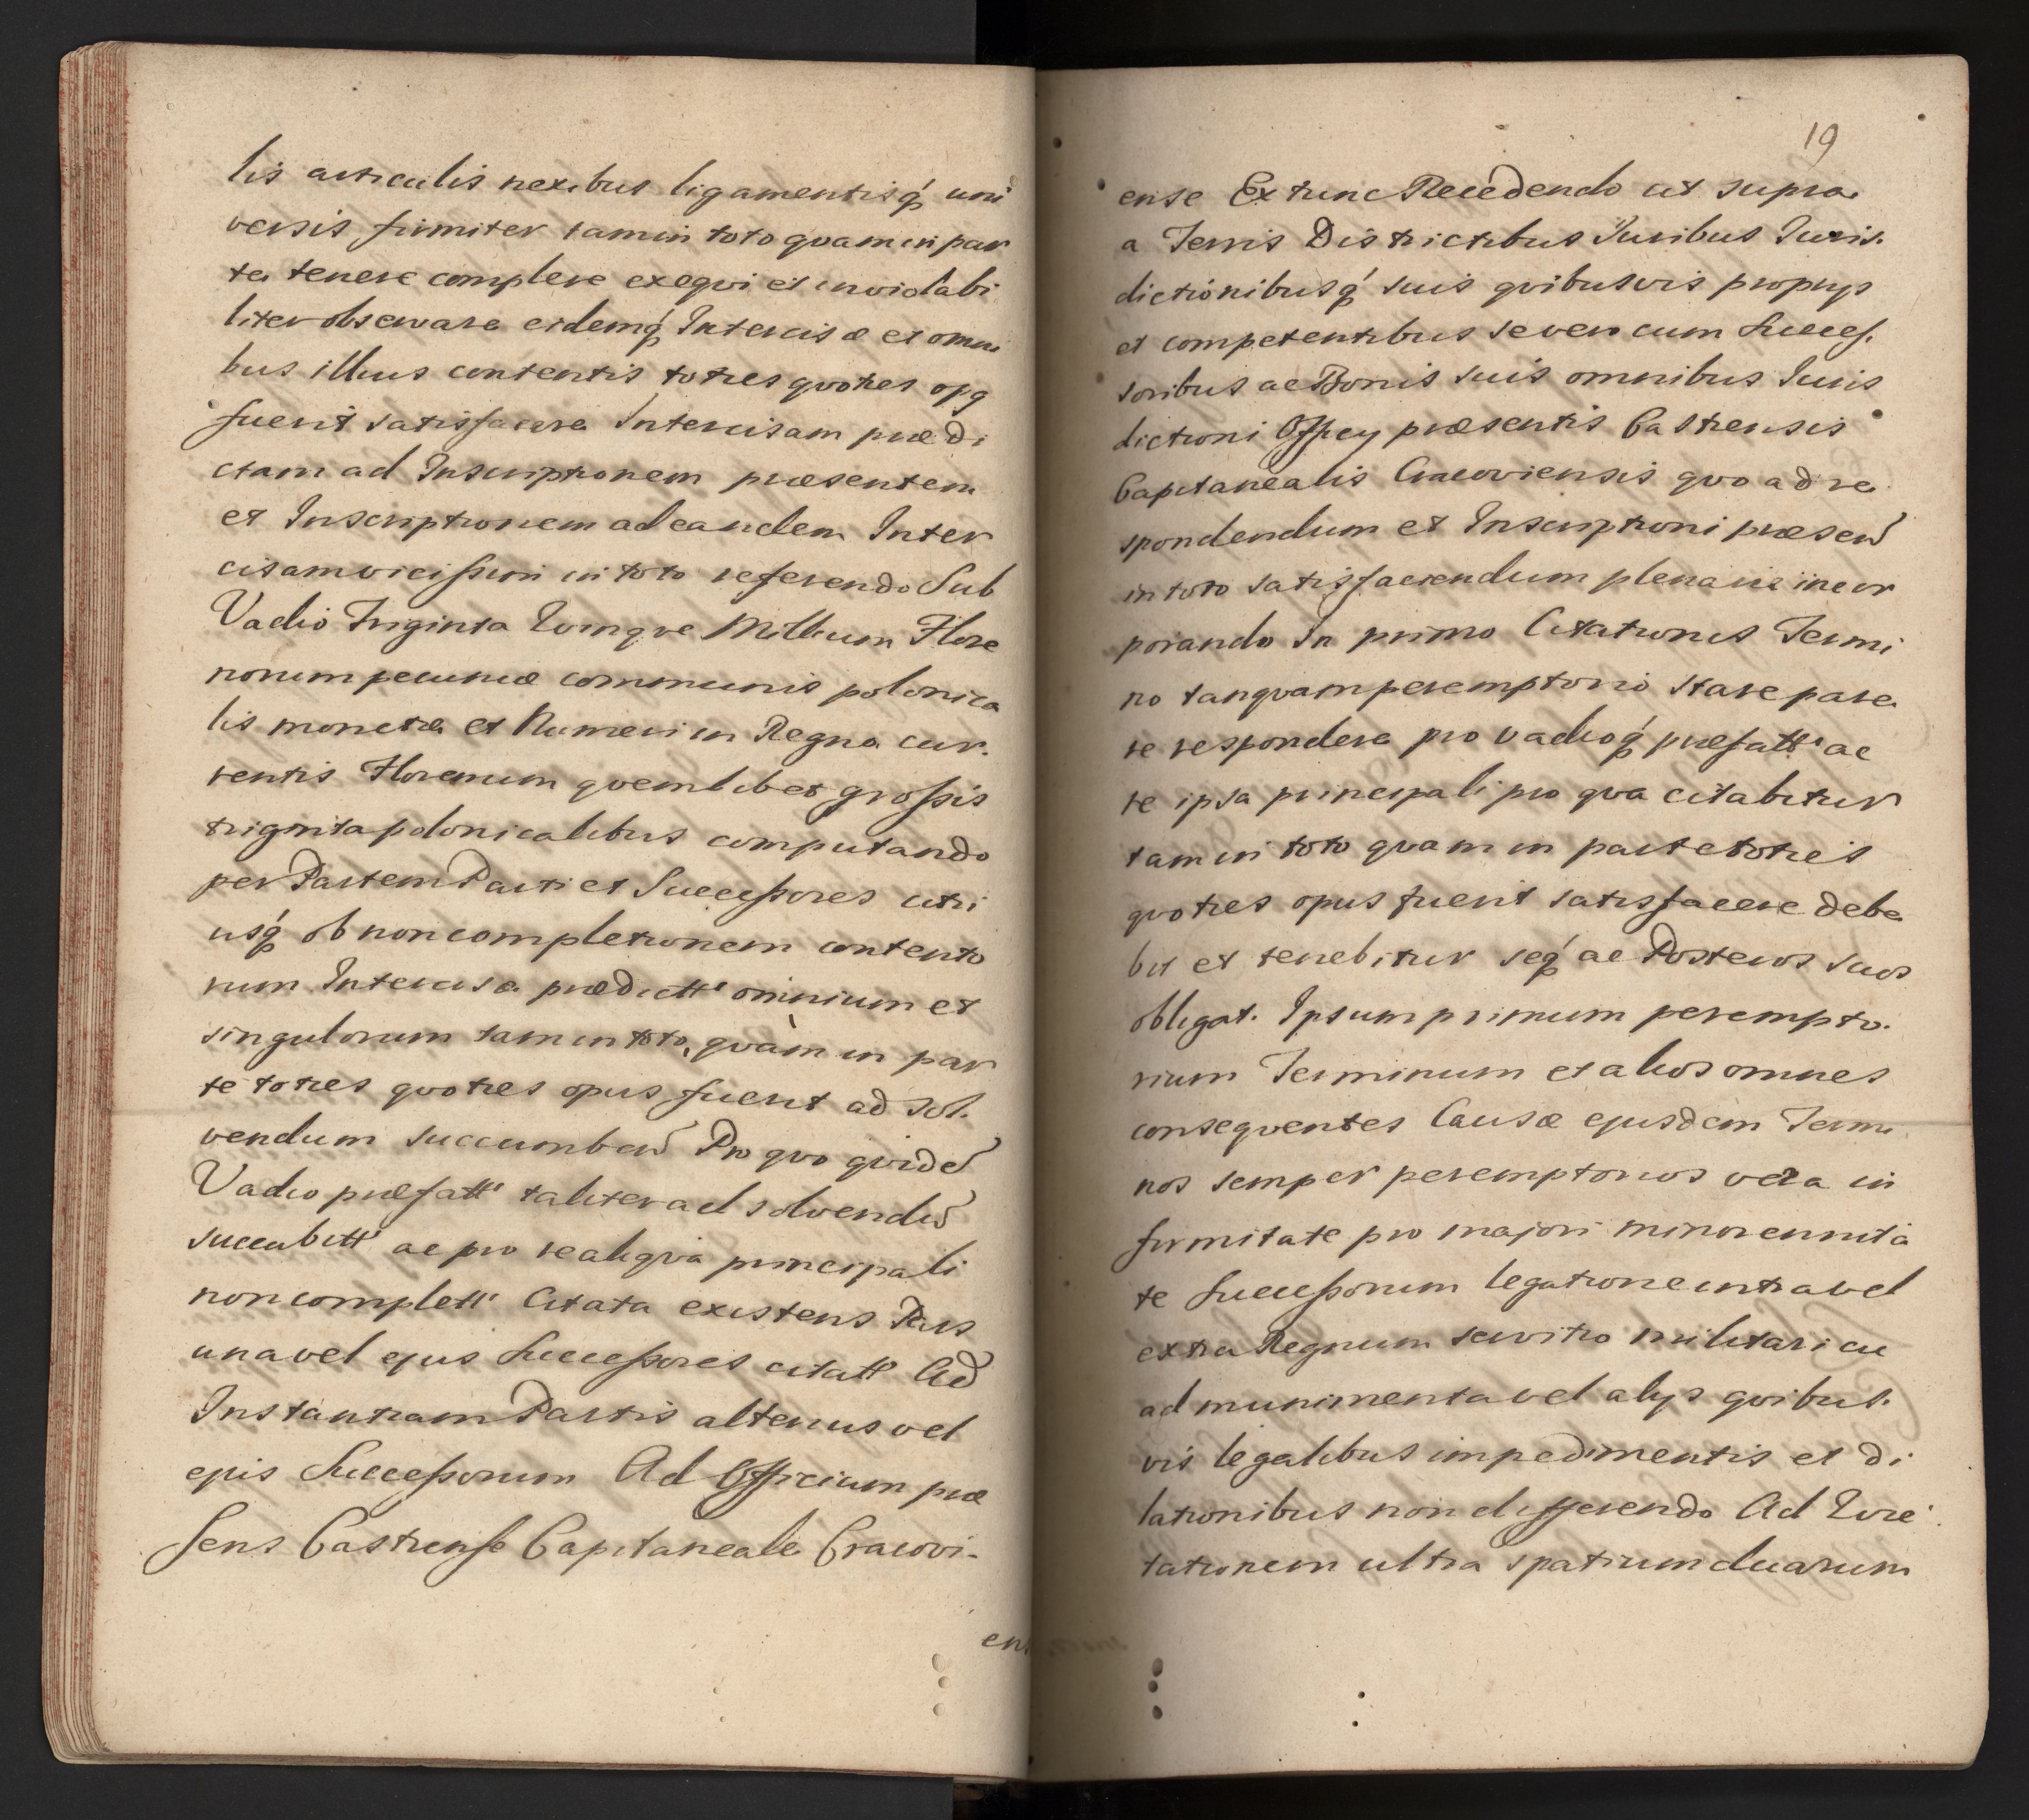 lis articulis nexibus ligamentisq́ uni
versis firmiter tam in toto qvam in par
te tenere complere exeqvi et inviolabi
liter observare eidemq́ Intercisæ et omni
bus illius contentis toties qvoties opq
fuerit satisfacere Intercisam prædi
ctam ad Inscriptionem præsentem
et Inscriptionem ad eandem Inter
cisam vicissim in toto referendo Sub
Vadio Triginta Qvinqve Millium Flore
norum pecuniæ communis polonica
lis monetæ et Numeri in Regno cur-
rentis Florenum qvemlibet grossis
triginta polonicalibus computando
per Partem Parti et Successores utri
usq́ ob non completionem contento
rum Intercisæ prædictt omnium et
singulorum tam in toto, qvàm in par
te toties qvoties opus fuerit ad sol-
vendum succumben Pro qvo qvide
Vadio præfatt taliter ad solvendu
succubitt ac pro re aliqva principali
non complett Citata existens Pars
una vel ejus Successores citatt Ad
Instantiam Partis alterius vel
ejus Successorum Ad Officium præ
sens Castrense Capitaneale Cracovi-
en
19
ense Extunc Recedendo ut supra
a Terris Districtibus Iuribus Iuris-
dictionibusq́ suis qvibusvis proprys
et competentibus seven cum Succes-
soribus ac Bonis suis omnibus Iuris
dictioni Officy præsentis Castrensis
Capitanealis Cracoviensis qvo ad re
spondendum et Inscriptioni præsen
in toto satisfaciendum plenarie incor
porando In primo Citationis Termi
no tanqvam peremptorio stare pare
re respondere pro vadioq́ præfatt ac
re ipsa principali pro qva citabitur
tam in toto qvam in parte toties
qvoties opus fuerit satisfacere debe
bit et tenebitur seq́ ac Posteros suos
obligat. Ipsum primum perempto-
rium Terminum et alios omnes
conseqventes Causæ ejusdem Termi
nos semper peremptorios vera in
firmitate pro majori minorennita
te Successorum legatione intra vel
extra Regnum servitio militari cu
ad munimenta vel alys qvibus-
vis legalibus impedimentis et di
lationibus non differendo Ad Qvie
tationem ultra spatium duarum